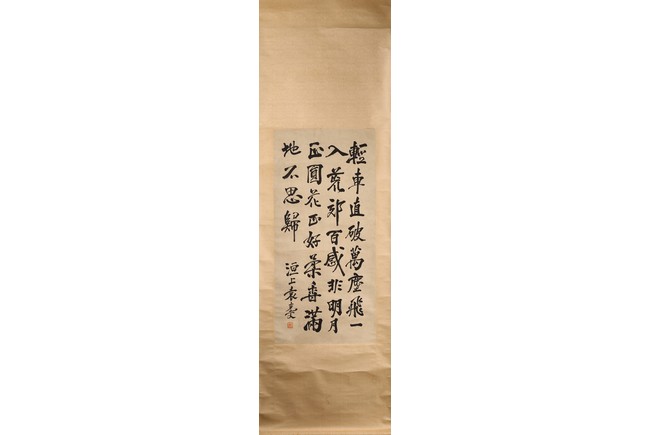 輕車直破萬塵飛一
入荒郊百感非明月
正圓花正好柔滿
地不思歸
洹上袁